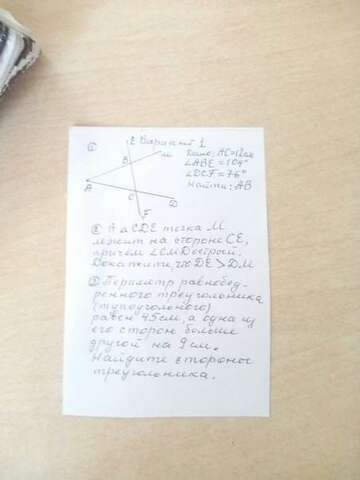 Вариант 1
① E
M
B
A
C
D
F
Дано: AC=12см
∠ABE=104°
∠DCF=76°
Найти: AB
② Δ CDE точка M
лежит на стороне CE,
причем ∠CMD острый.
Докажите, что DE > DM
③ Периметр равнобед-
ренного треугольника
(тупоугольного)
равен 45см, а одна из
его сторон больше
другой на 9 см.
Найдите стороны
треугольника.